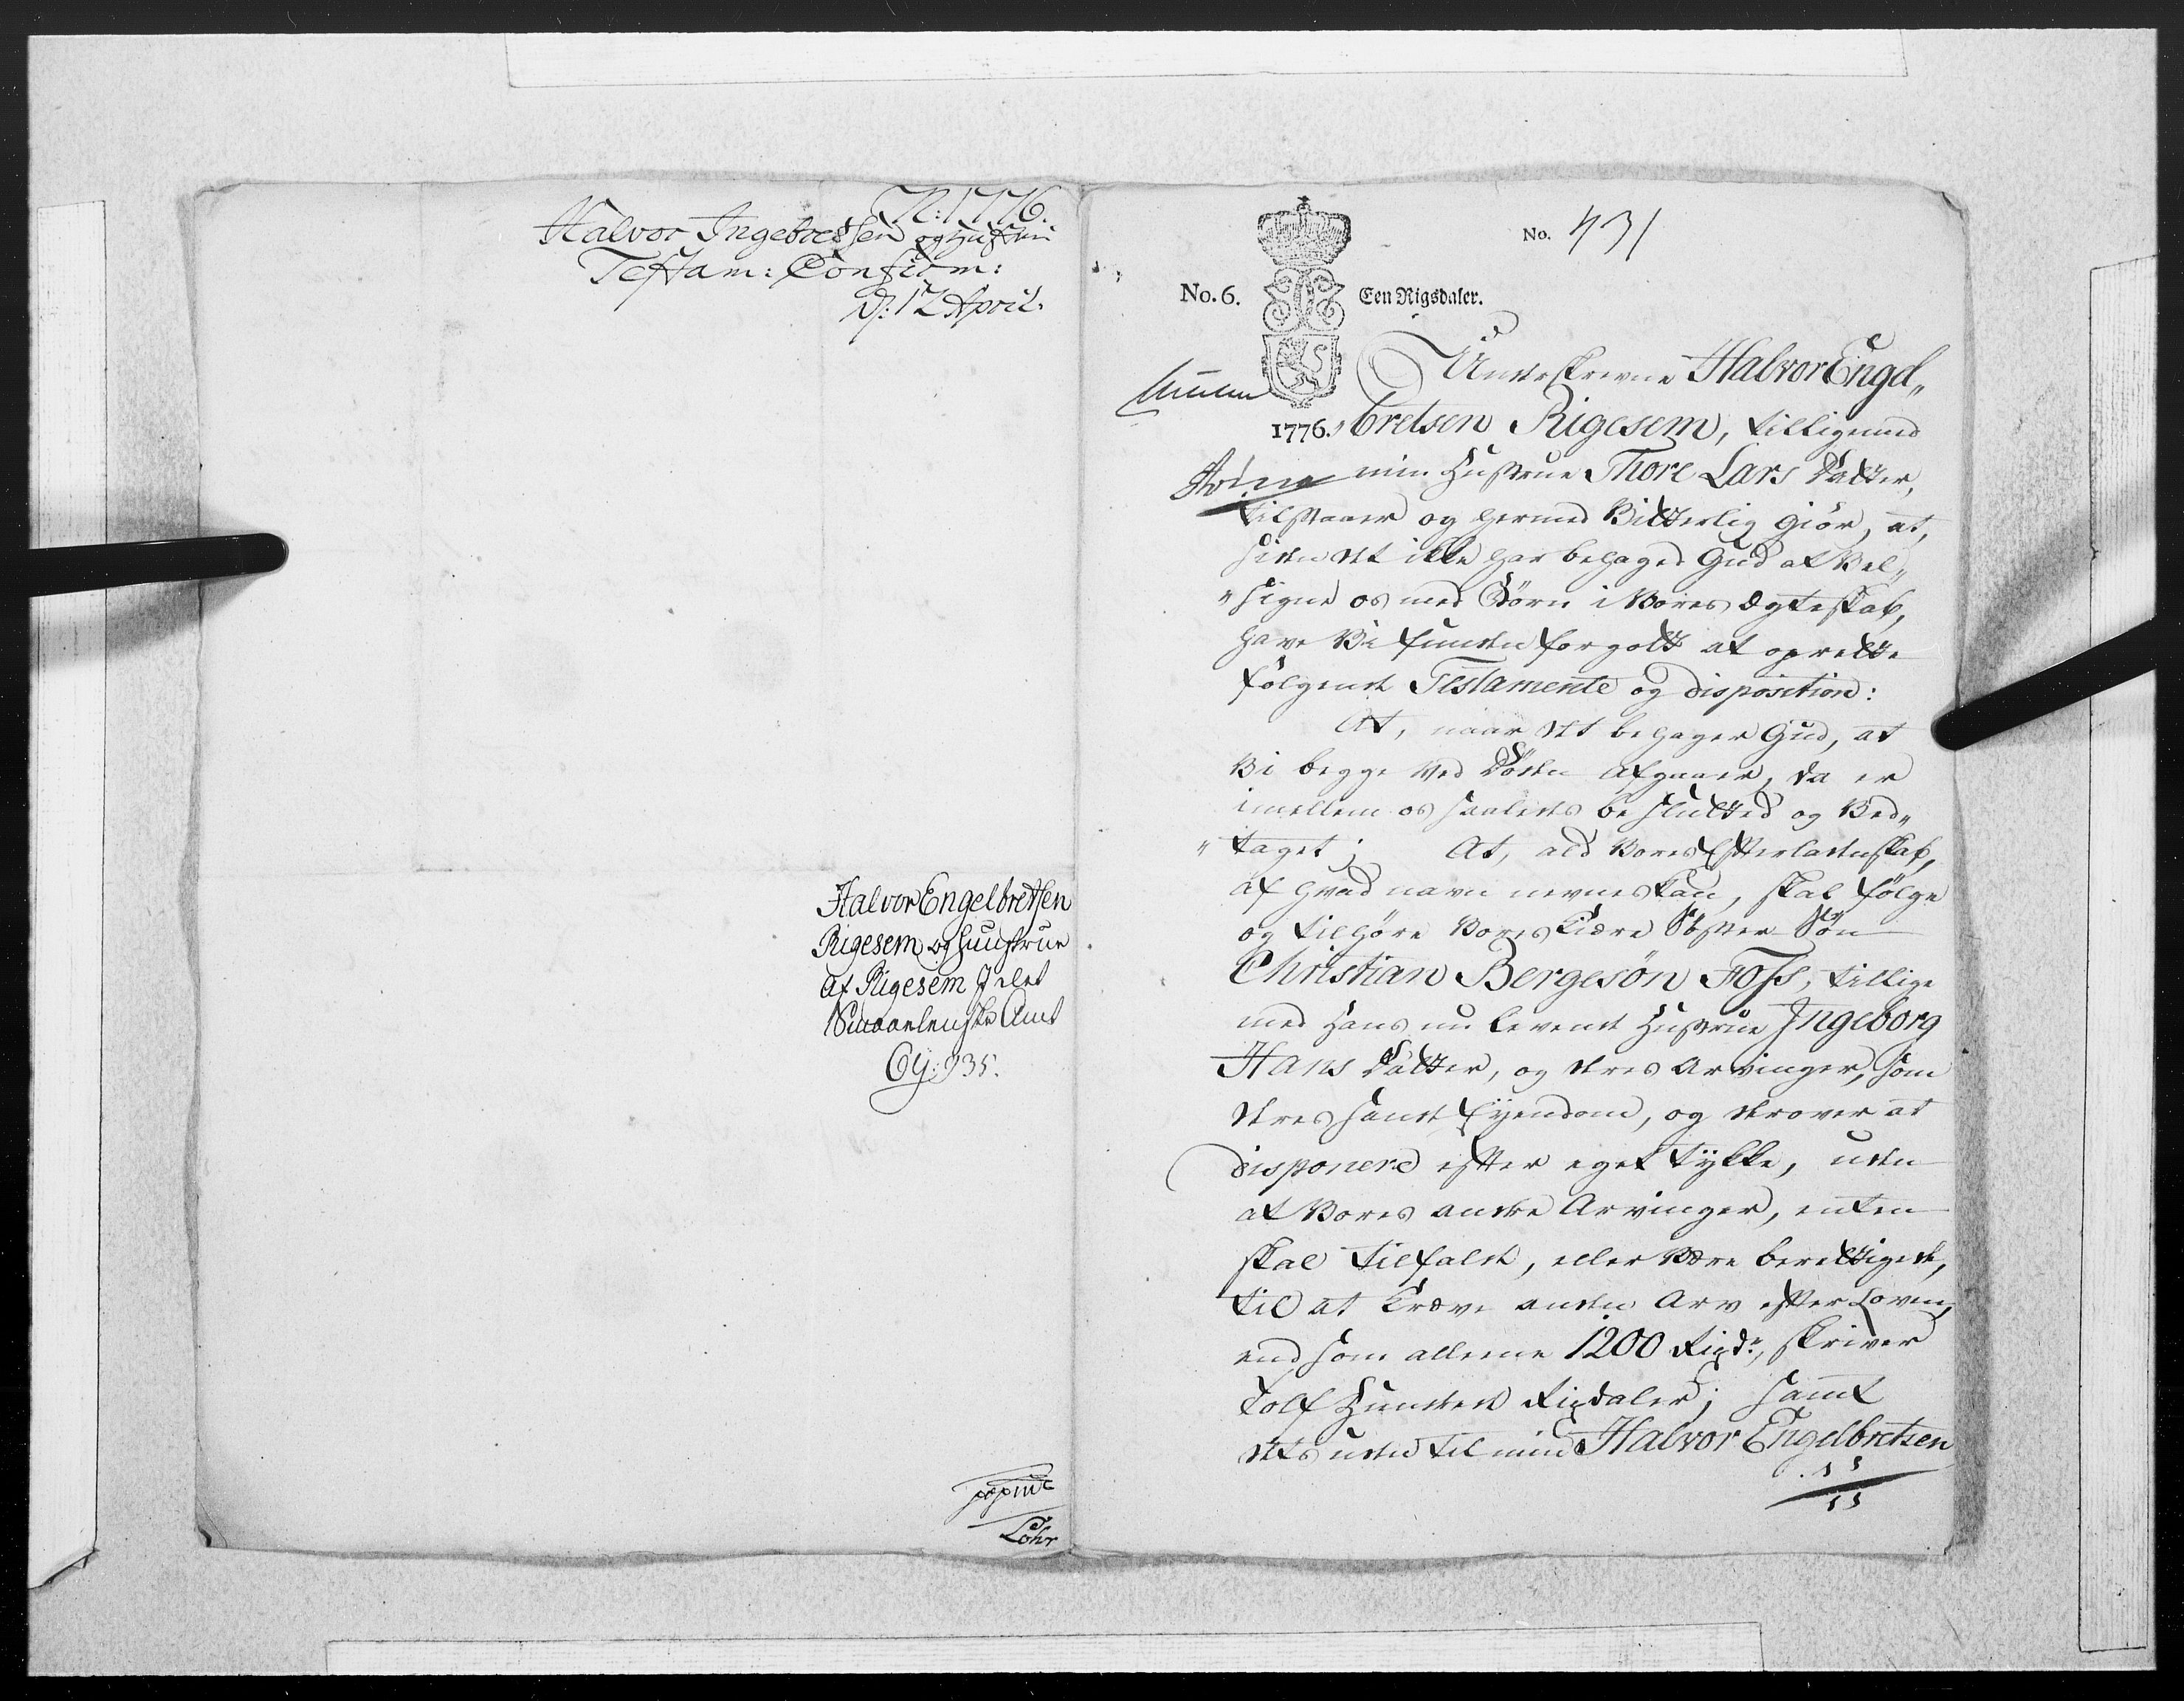 N: 1776.
Halvor Ingebretsen og Hustrue
Testam: Confirm:
D: 12 April.
Halvor Engelbretsen
Rigesem og Huustrue
af Rigesem J det
Smaalenske Amt
Lohr
No. 431
No. 6. Een Rigsdaler.
Underskrevne Halvor Engel„
1776. bretsen Rigesem, tilligemed
min Hustrue Thore Lars Datter,
tilstaaer og hermed Vitterlig giör, at,
siden det ikke har behaged Gud at Vel„
„signe os med Börn i Vores Ægteskab,
have Vi funden for godt at oprette
følgende Testamente og disposition:
At, naar det behager Gud, at
Vi begge Ved Döden afgaaer, da er
imellem os saaledes beslutted og Ved„
„taget; At, ald Vores Efterladenskab,
af hvad navn nevnes kan, skal følge
og tilhøre Vores Kiære Söster Sön
Christian Bergesön Foss, tillige
med Hans nu levende Hustrue Ingeborg
Hans Datter, og deres Arvinger, som
deres sande Eyendom, og derover at
disponere efter eget tykke, uden
at Vores andre Arvinger, enten
skal tilfalde, eller Være berettigede,
til at Kræve anden Arv efter Loven,
end som allene 1200 Rigdr, skriver
Tolf Hundrede Rigdaler; samt
desuden til min Halvor Engelbretsen